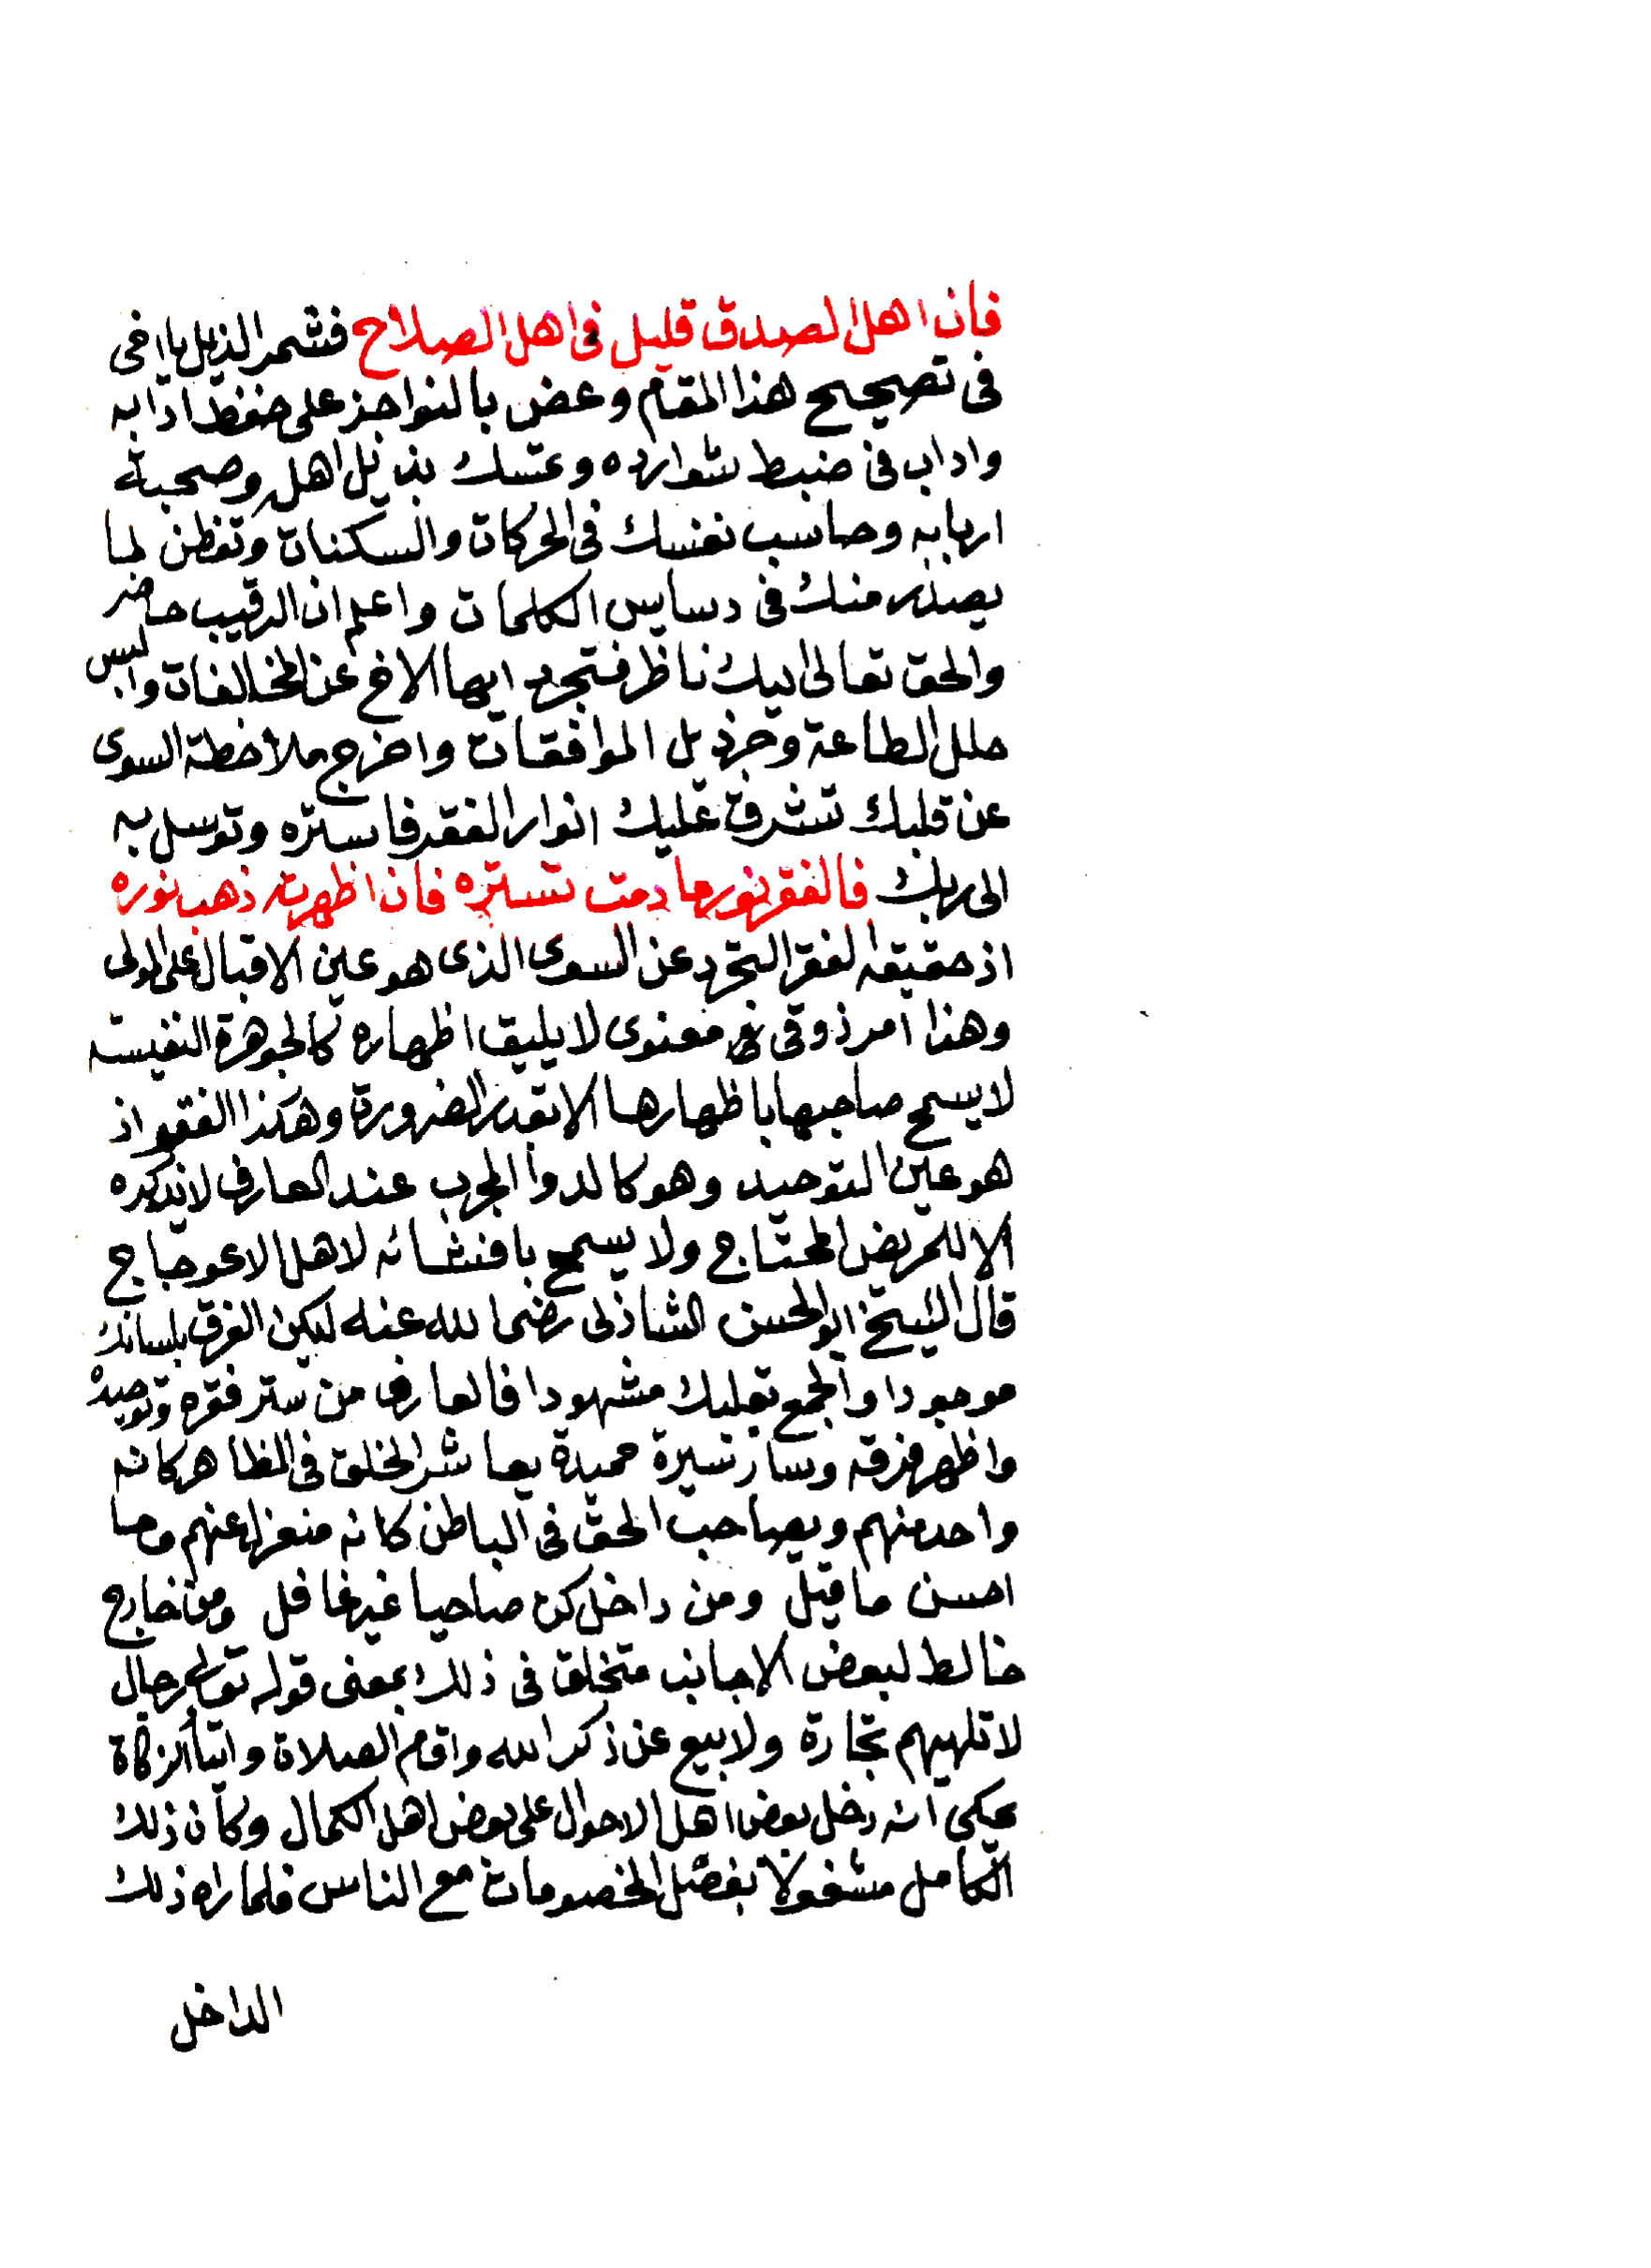 فان اهل الصدق قليل فى اهل الصلاح فشمر الذيل يا اخى
فى تصحيح هذا المقام وعض بالنواجز على حفظ ادابه
واداب فى ضبط شوارده وتمسك بذيل اهله وصحبة
اربابه وحاسب نفسك فى الحركات والسكنات وتفطن لما
يصدر منك فى دسايس الكلمات واعلم ان الرقيب حاضر
والحق تعالى اليك ناظر فتجرد ايها الاخ عن المخالفات والبس
حلل الطاعة وجر ذيل الموافقات واخرج ملاحظة السوى
عن قلبك تشرق عليك انوار الفقر فاستره وتوسل به
الى ربك فالفقر نور ما دمت تستره فان اظهرته ذهب نوره
اذ حقيقة الفقر التجرد عن السوى الذى هو عين الاقبال على المولى
وهذا امر ذوقى معنوى لا يليق اظهاره كالجوهرة النفيسة
لا يسمح صاحبها باظهارها الا بقدر الضرورة وهكذا الفقر اذ
هو عين التوحيد وهو كالدوا المجرب عند العارف لا يذكره
الا للمريض المحتاج ولا يسمح بافشائه لاهل الاعوجاج
قال الشيخ ابو الحسن الشاذلى رضى الله عنه ليكن الفرق بلسانك
موجودا والجمع بقلبك مشهودا فالعارف من ستر فقره وتوحيده
واظهر فرقه وسار سيرة حميدة يعاشر الخلق فى الظاهر كانه
واحد منهم ويصاحب الحق فى الباطن كانه منعزلا عنهم وما
احسن ما قيل ومن داخل كن صاحيا غير غافل ومن خارج
خالط لبعض الاجانب متخلق فى ذلك بمعنى قوله تعالى رجال
لا تلهيهم تجارة ولا بيع عن ذكر الله واقام الصلاة وايتا الزكاة
يحكى انه دخل بعض اهل الاحوال على بعض اهل الكمال وكان ذلك
الكامل مشغولا بفصل الخصومات مع الناس فلما راه ذلك
الداخل